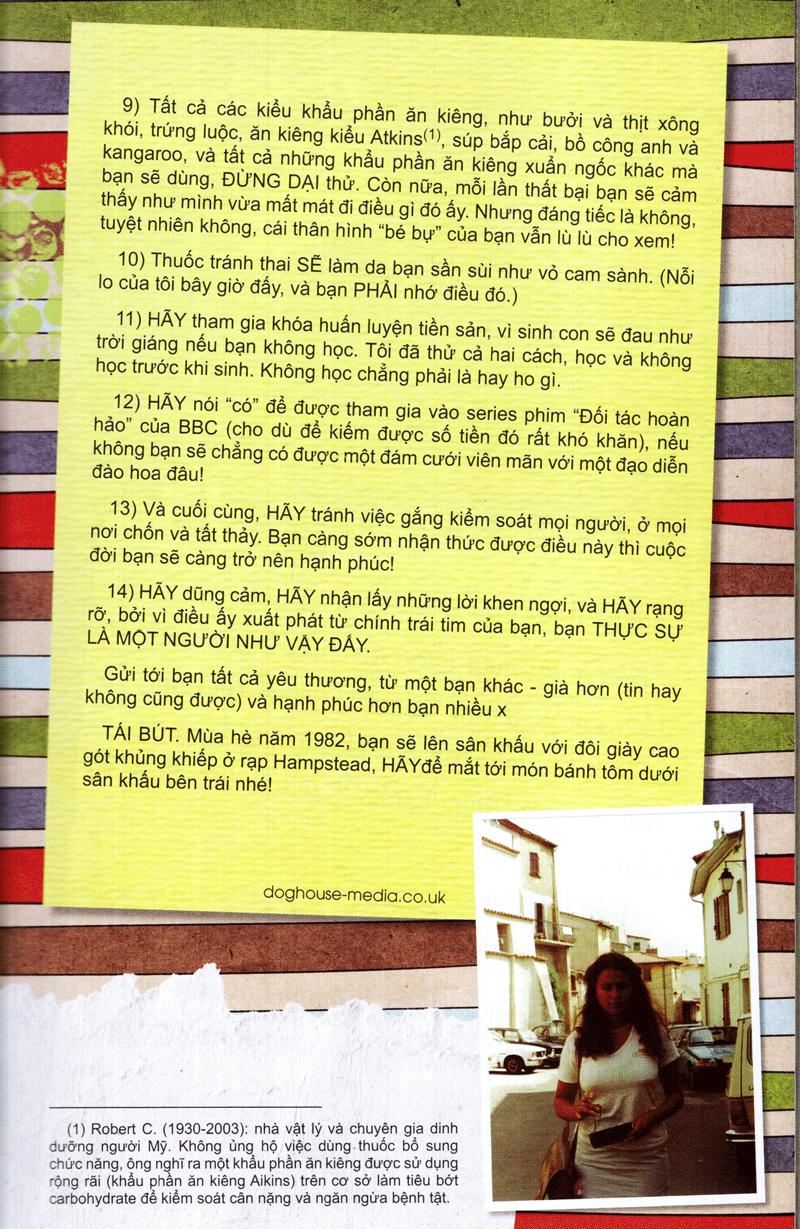 9) Tất cả các kiểu khẩu phần ăn kiêng, như bưởi và thịt xông
khói, trứng luộc, ăn kiêng kiểu Atkins(1), súp bắp cải, bồ công anh và
kangaroo, và tất cả những khẩu phần ăn kiêng xuẩn ngốc khác mà
bạn sẽ dùng, ĐỪNG DẠI thử. Còn nữa, mỗi lần thất bại bạn sẽ cảm
thấy như mình vừa mất mát đi điều gì đó ấy. Nhưng đáng tiếc là không,
tuyệt nhiên không, cái thân hình “bé bự” của bạn vẫn lù lù cho xem!
10) Thuốc tránh thai SẼ làm da bạn sần sùi như vỏ cam sành. (Nỗi
lo của tôi bây giờ đấy, và bạn PHẢI nhớ điều đó.)
11) HÃY tham gia khóa huấn luyện tiền sản, vì sinh con sẽ đau như
trời giáng nếu bạn không học. Tôi đã thử cả hai cách, học và không
học trước khi sinh. Không học chẳng phải là hay ho gì.
12) HÃY nói “có” để được tham gia vào series phim “Đối tác hoàn
hảo” của BBC (cho dù để kiếm được số tiền đó rất khó khăn), nếu
không bạn sẽ chẳng có được một đám cưới viên mãn với một đạo diễn
đào hoa đâu!
13) Và cuối cùng, HÃY tránh việc gắng kiểm soát mọi người, ở mọi
nơi chốn và tất thảy. Bạn càng sớm nhận thức được điều này thì cuộc
đời bạn sẽ càng trở nên hạnh phúc!
14) HÃY dũng cảm, HÃY nhận lấy những lời khen ngợi, và HÃY rạng
rỡ, bởi vì điều ấy xuất phát từ chính trái tim của bạn, bạn THỰC SỰ
LÀ MỘT NGƯỜI NHƯ VẬY ĐẤY.
Gửi tới bạn tất cả yêu thương, từ một bạn khác - già hơn (tin hay
không cũng được) và hạnh phúc hơn bạn nhiều x
TÁI BÚT. Mùa hè năm 1982, bạn sẽ lên sân khấu với đôi giày cao
gót khủng khiếp ở rạp Hampstead, HÃYđể mắt tới món bánh tôm dưới
sân khấu bên trái nhé!
doghouse-media.co.uk
(1) Robert C. (1930-2003): nhà vật lý và chuyên gia dinh
dưỡng người Mỹ. Không ủng hộ việc dùng thuốc bổ sung
chức năng, ông nghĩ ra một khẩu phần ăn kiêng được sử dụng
rộng rãi (khẩu phần ăn kiêng Aikins) trên cơ sở làm tiêu bớt
carbohydrate để kiểm soát cân nặng và ngăn ngừa bệnh tật.